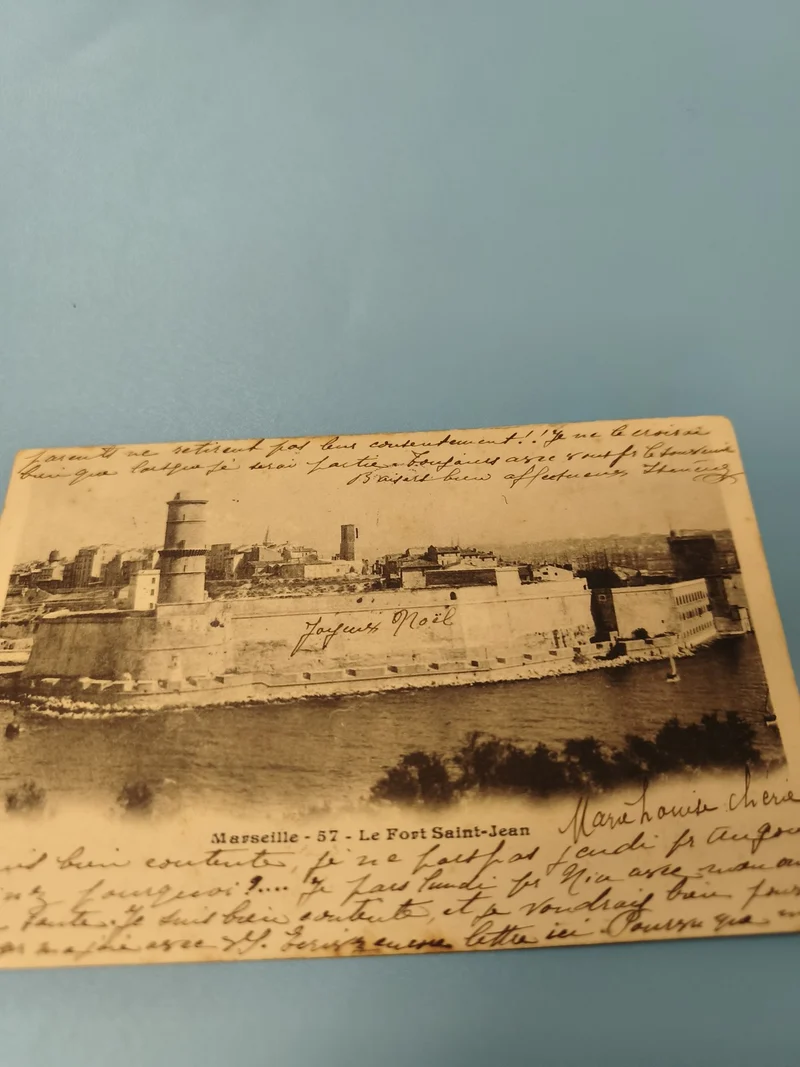 parents ne retirent pas leur consentement!! Je ne le croirai
bien que lorsque je serai partie. Toujours avec vous pr le souvenir
Baisers bien affectueux
Joyeux Noël
Marseille - 57 - Le Fort Saint-Jean
Marie Louise chérie
suis bien contente, je ne pars pas jeudi pr
pourquoi?.... Je pars lundi pr avec mon
tante. Je suis bien contente, et je voudrais bien
ma joie avec Ecrivez encore lettre ici. Pourvu que